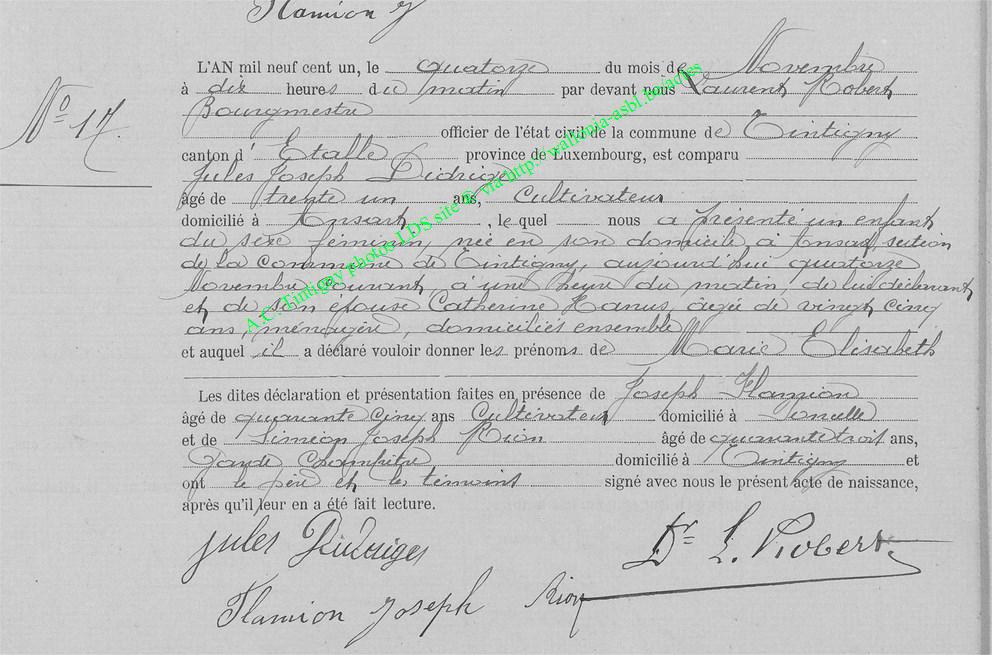 Flamion J
L'AN mil neuf cent un, le quatorze du mois de Novembre
à dix heures du matin par devant nous Laurent Robert
Bourgmestre
officier de l'état civil de la commune de Tintigny
N° 17.
canton d' Etalle province de Luxembourg, est comparu
Jules Joseph
âgé de trente un ans, Cultivateur
domicilié à Ansart, le quel nous a présenté un enfant
du sexe féminin, née en son domicile à Ansart, section
de la Commune de Tintigny, aujourd'hui quatorze
Novembre courant à une heure du matin, de lui déclarant
et de son épouse Catherine Hanus, âgée de vingt cinq
ans, ménagère, domiciliés ensemble
et auquel il a déclaré vouloir donner les prénoms de Marie Elisabeth
Les dites déclaration et présentation faites en présence de Joseph Flamion
âgé de quarante cinq ans Cultivateur domicilié à
et de Siméon Joseph Rion âgé de quarante trois ans,
Garde Champêtre domicilié à Tintigny et
ont le père et les témoins signé avec nous le présent acte de naissance,
après qu'il leur en a été fait lecture.
Jules
Dr L. Robert
Flamion Joseph Rion
A.C. Tintigny photos LDS site © via http://wallonia-asbl.be/actes